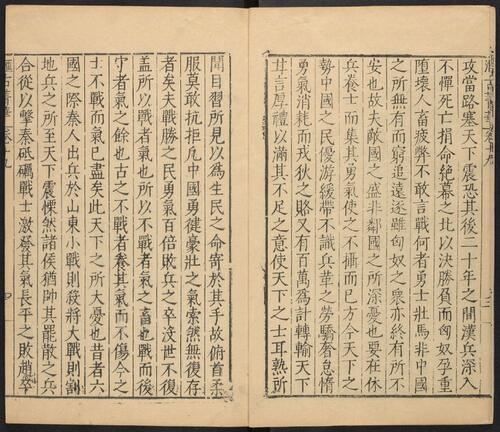 攻當路塞天下震恐其後二十年之間漢兵深入
不憚死亡捐命絕幕之北以決勝負而匈奴孕重
墮壞人畜疲弊不敢言戰何者勇士壯馬非中國
之所無有而窮追遠逐雖匈奴之衆亦終有所不
安也故夫敵國之盛非鄰國之所深憂也要在休
兵養士而集其勇氣使之不懾而已方今天下之
勢中國之民優游緩帶不識兵革之勞驕奢怠惰
勇氣消耗而戎狄之賂又有百萬爲計轉輸天下
甘言厚禮以滿其不足之意使天下之士耳熟所
聞目習所見以爲生民之命寄於其手故俯首柔
服莫敢抗拒凡中國勇健豪壯之氣索然無復存
者矣夫戰勝之民勇氣百倍敗兵之卒沒世不復
盖所以戰者氣也所以不戰者氣之畜也戰而後
守者氣之餘也古之不戰者養其氣而不傷今之
士不戰而氣已盡矣此天下之所大憂也昔者六
國之際秦人出兵於山東小戰則殺將大戰則割
地兵之所至天下震慄然諸侯猶帥其罷散之兵
合從以擊秦砥礪戰士激發其氣長平之敗趙卒